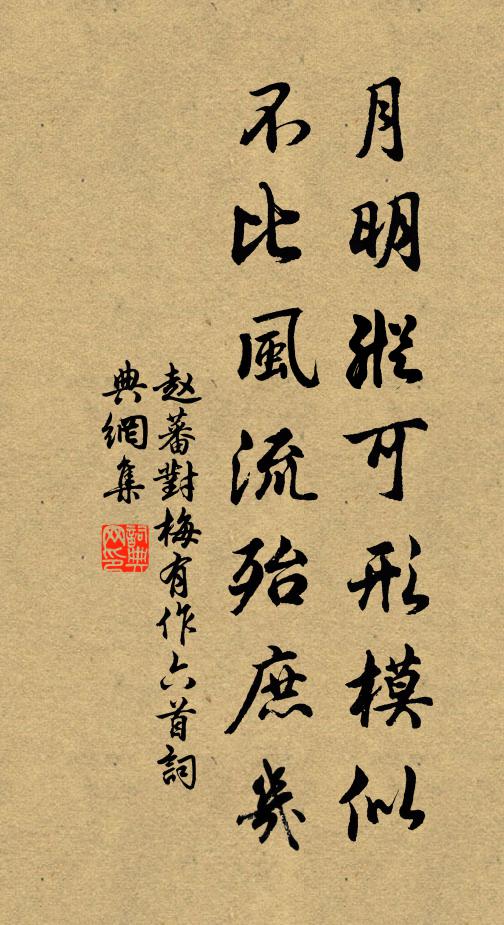 月明纵可形模似
不比風流殆庶幾
赵蕃對梅有作六首詞
典網集
詞典
網印